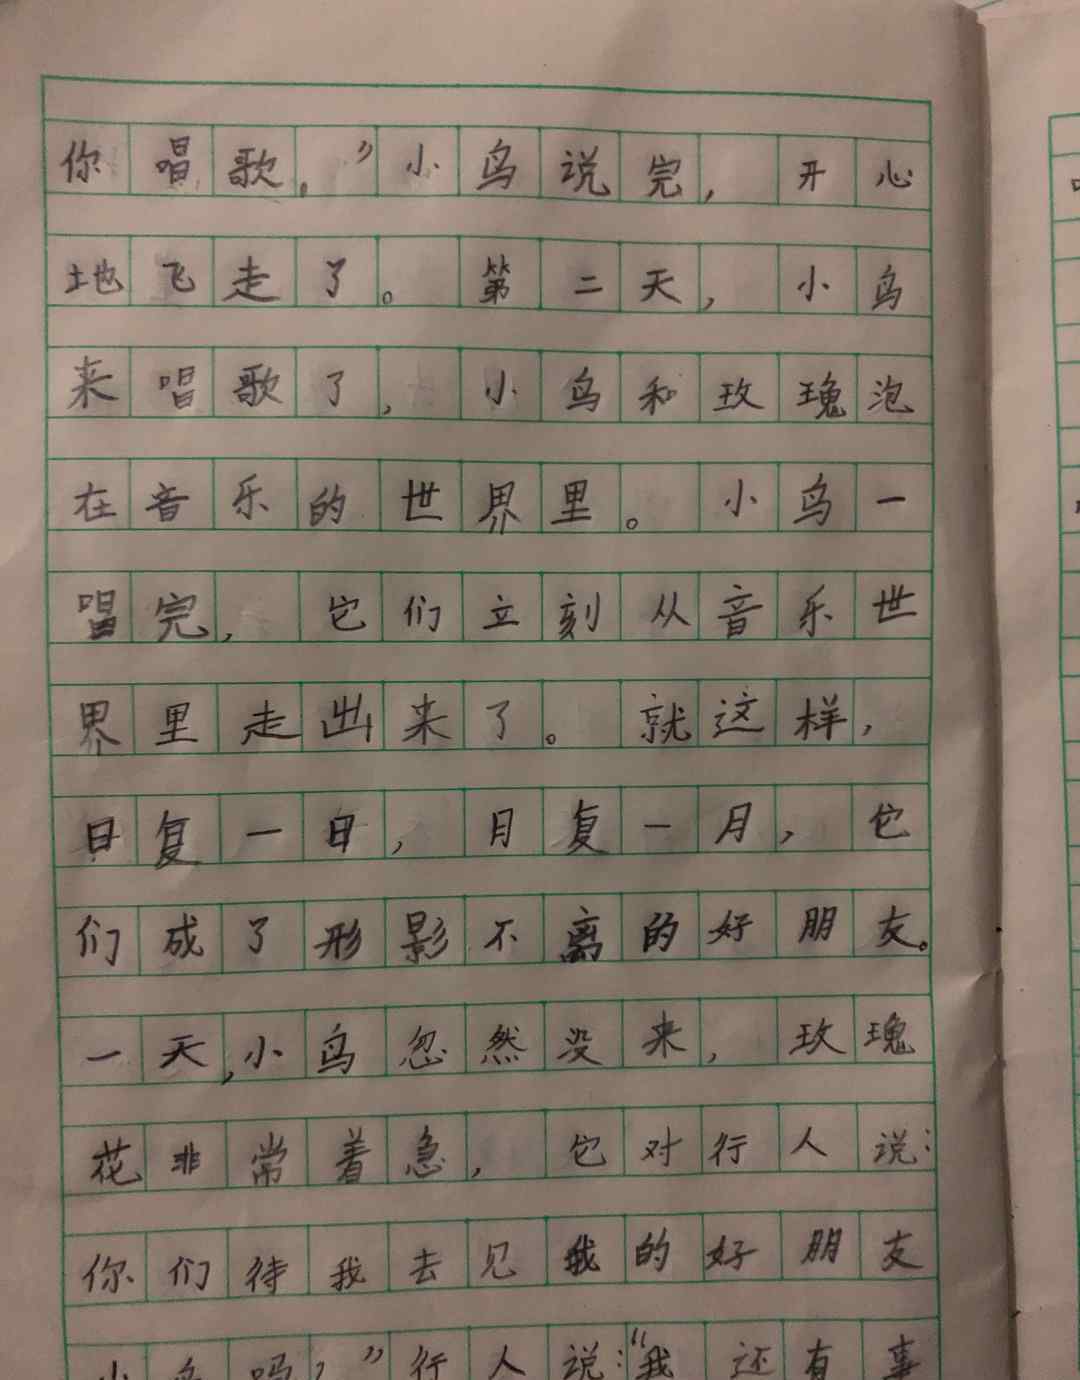 你唱歌。”小鸟说完，开心
地飞走了。第二天，小鸟
来唱歌了，小鸟和玫瑰泡
在音乐的世界里。小鸟一
唱完，它们立刻从音乐世
界里走出来了。就这样，
日复一日，月复一月，它
们成了形影不离的好朋友。
一天，小鸟忽然没来，玫瑰
花非常着急，它对行人说：
你们待我去见我的好朋友
小鸟吗？”行人说：“我还有事